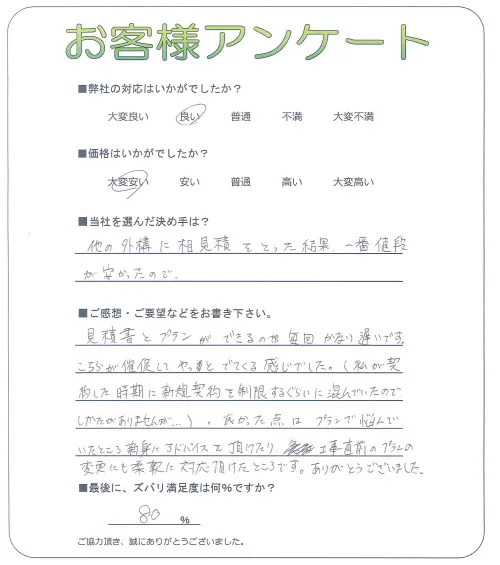 お客様アンケート
■弊社の対応はいかがでしたか？
大変良い 良い 普通 不満 大変不満
■価格はいかがでしたか？
大変安い 安い 普通 高い 大変高い
■当社を選んだ決め手は？
他の外構に相見積をとった結果、一番値段
が安かったので、
■ご感想・ご要望などをお書き下さい。
見積書とプランができるのが毎回かなり遅いです。
こちらが催促してやっとでてくる感じでした。（私が契
約した時期に新規契約を制限するぐらいに混んでいたので
しかたがありませんが…）。良かった点はプランで悩んで
いたところ親身にアドバイスを頂けたり、工事直前のプランの
変更にも柔軟に対応頂けたところです。ありがとうございました。
■最後に、ズバリ満足度は何％ですか？
80 ％
ご協力頂き、誠にありがとうございました。